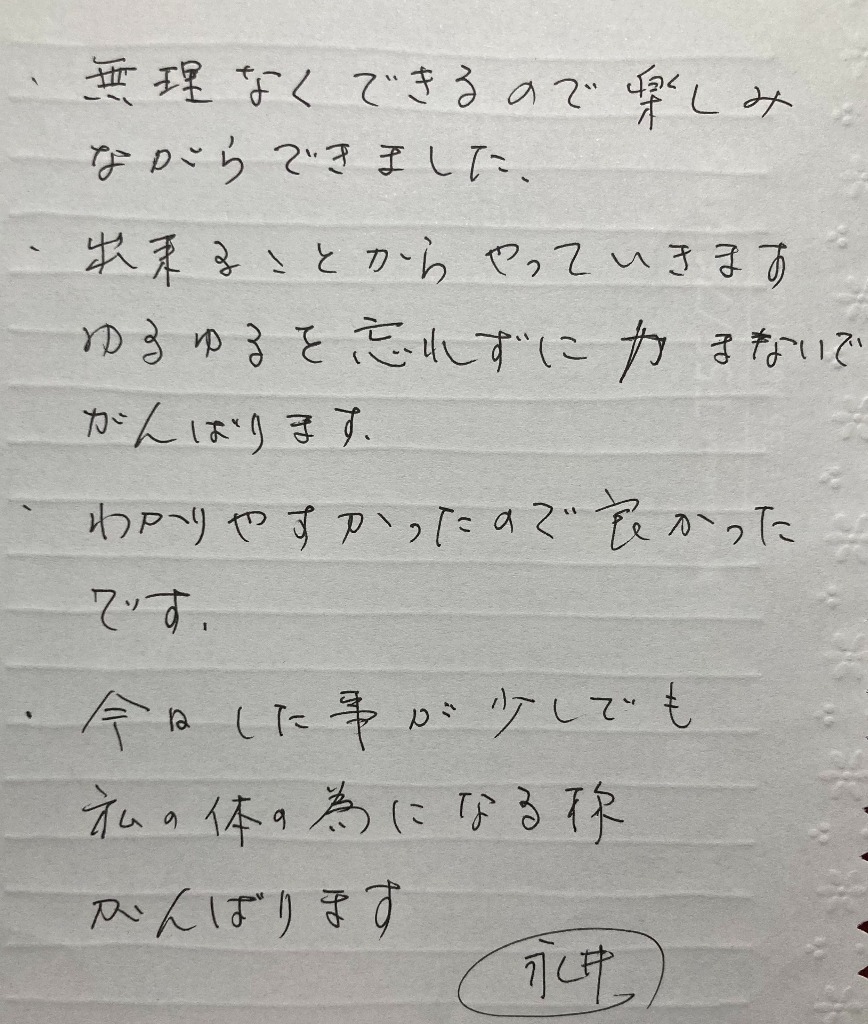 ・無理なくできるので楽しみ
ながらできました、
・出来ることからやっていきます
ゆるゆるを忘れずに力まないで
がんばります.
・わかりやすかったので良かった
です.
・今日した事が少しでも
私の体の為になる様
がんばります
永井